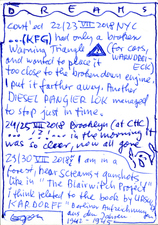 DREAMS
cont'd 22/23 VII 2018 NYC
...(KFG) had only a broken
Warning Triangle (for cars,
and wanted to place it WARNDREI-
ECK)
too close to the broken down engine.
I put it farther away. Another
DIESEL RANGIER LOK managed
to stop just in time.
24/25 VII 2018 Brooklyn (at CHE
... !?! ... in the morning it
was so clear, now all gone
29/30 VII 2018 I am in a
forest, hear screams & gunshots
like in "The Blair Witch Project"
I think related to the book by URSULA
KARDORFF "Berliner Aufzeichnungen
aus den Jahren
1942-1945"